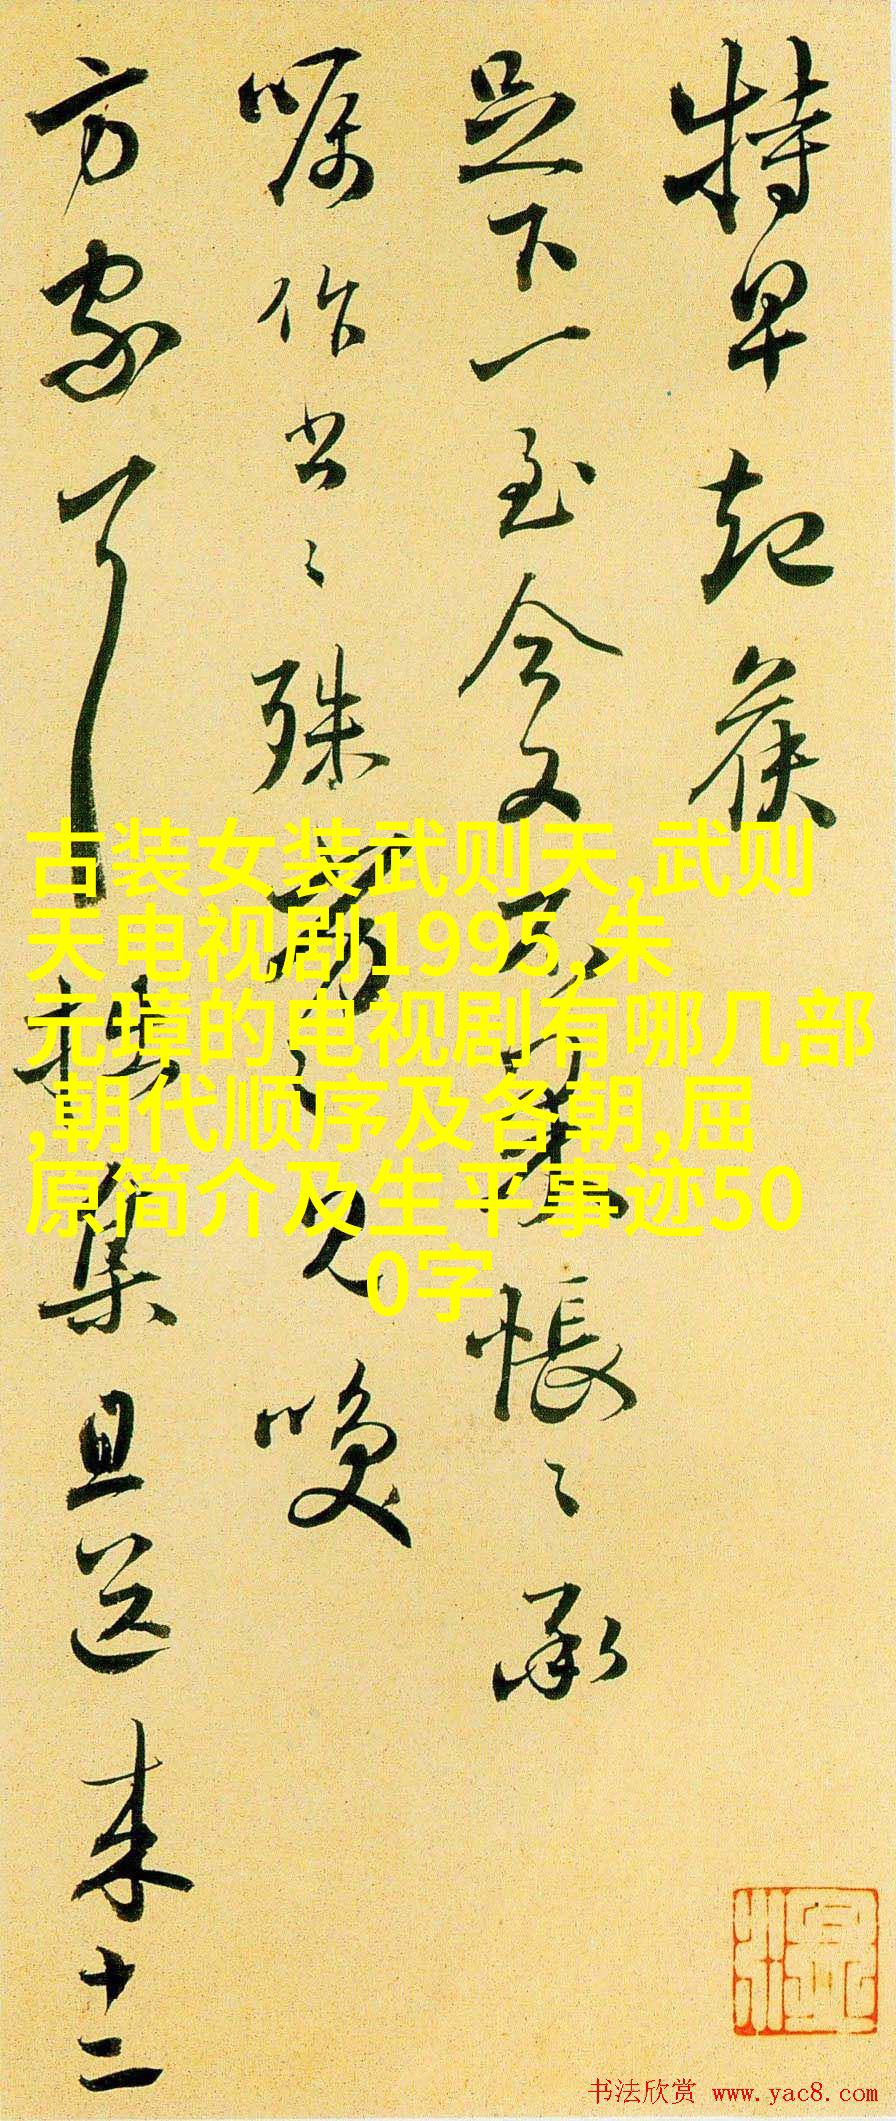 特早起候
足下一至今又不果怅〻承
嘱作书〻殊劣〻见唤
方家耳
集且送来十二
古装女装武则天,武则
天电视剧1995,朱
元璋的电视剧有哪几部
,朝代顺序及各朝,屈
原简介及生平事迹50
0字
书法欣赏 www.yac8.com